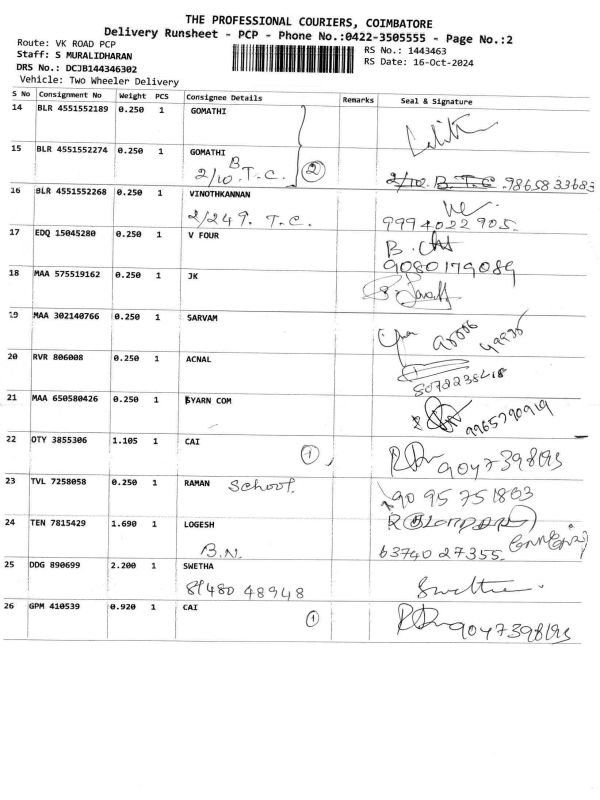 THE PROFESSIONAL COURIERS, COIMBATORE
Delivery Runsheet - PCP - Phone No.:0422-3505555 - Page No.:2
Route: VK ROAD PCP
Staff: S MURALIDHARAN
DRS No.: DCJB144346302
Vehicle: Two Wheeler Delivery
RS No.: 1443463
RS Date: 16-Oct-2024
S No Consignment No Weight PCS Consignee Details Remarks Seal & Signature
14 BLR 4551552189 0.250 1 GOMATHI
15 BLR 4551552274 0.250 1 GOMATHI
2/10. B T.C. 2 2/10. B. T.C. 9865833683
16 BLR 4551552268 0.250 1 VINOTHKANNAN
2/249. T.C. 9994022905.
17 EDQ 15045280 0.250 1 V FOUR
9080179089
18 MAA 575519162 0.250 1 JK
19 MAA 302140766 0.250 1 SARVAM
20 RVR 806008 0.250 1 ACNAL
21 MAA 650580426 0.250 1 BYARN COM
22 OTY 3855306 1.105 1 CAI
1
23 TVL 7258058 0.250 1 RAMAN School. 90 95 751803
24 TEN 7815429 1.690 1 LOGESH
B.N. 63740 27355.
25 DDG 890699 2.200 1 SWETHA
89480 48948 Swetha
26 GPM 410539 0.920 1 CAI
1